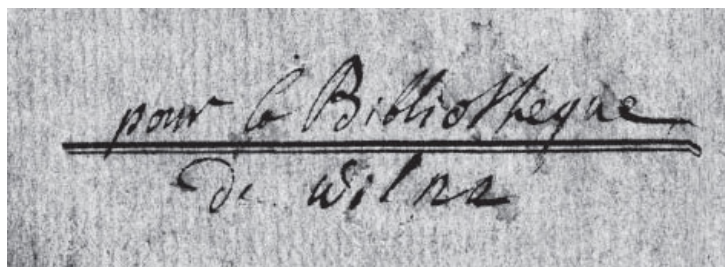 pour la Bibliotheque
de Wilna